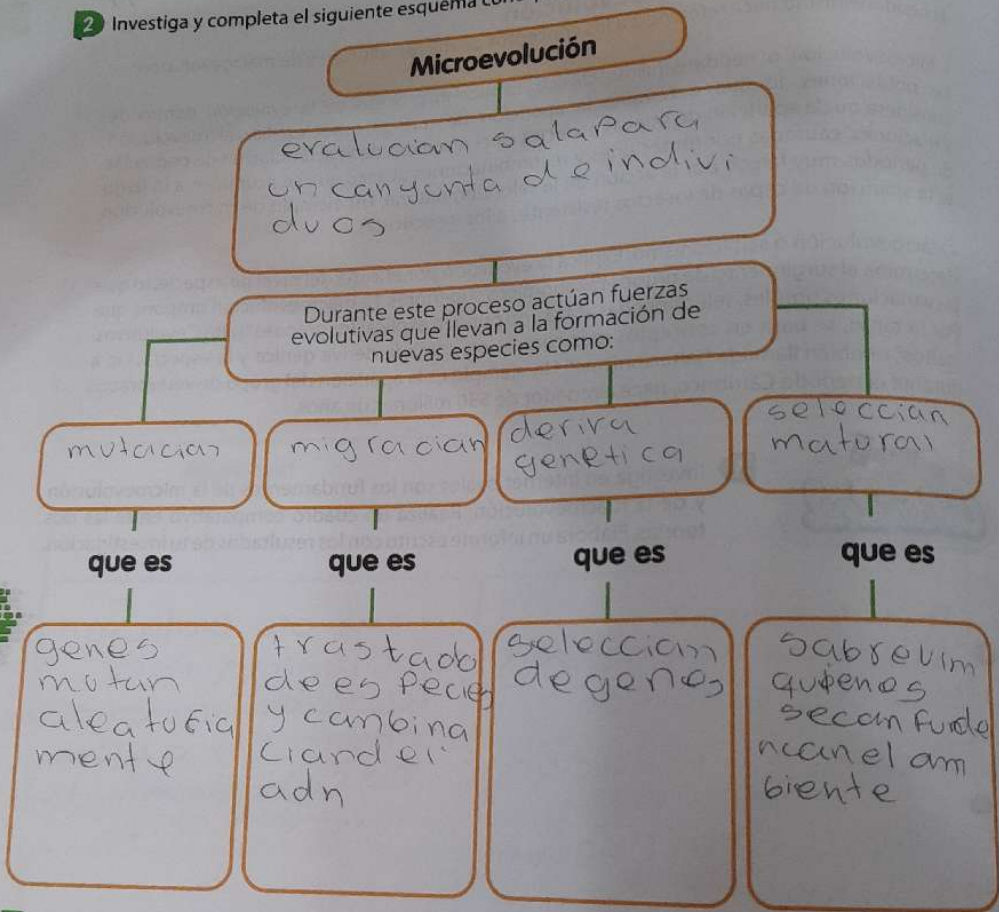 2 Investiga y completa el siguiente esquema
Microevolución
evalucian salapara
un canyunta de indivi
duos
Durante este proceso actúan fuerzas
evolutivas que llevan a la formación de
nuevas especies como:
mutacian
migracian
deriva
genética
seleccian
matural
que es
que es
que es
que es
genes
mutan
aleatoria
mente
trastado
de especies
y cambina
ciandel
adn
seleccian
degenes
sabrevim
quienes
secanfunde
ncanelam
biente